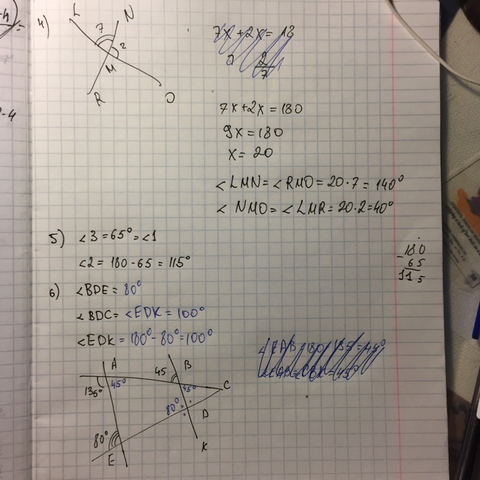 4)
L
N
7
2
M
R
O
7x+2x=180
9x=180
x=20
<LMN=<RMO=20·7=140°
<NMO=<LMR=20·2=40°
5) <3=65°=<1
<2=180-65=115°
180
- 65
115
6) <BDE=80°
<BDC=<EDK=100°
<EDK=180°-80°=100°
A
45
B
C
135°
45°
80°
D
80°
E
K